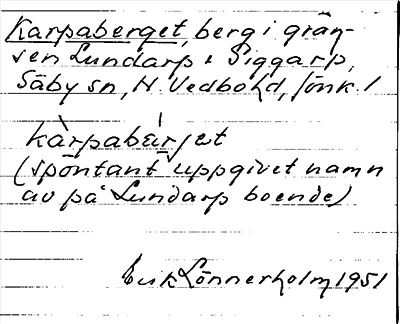 Karpaberget, berg i grän-
sen Lundarp & Siggarp,
Säby sn, N. Vedbo hd, Jönk. l
kàrpabärjət
(spontant uppgivet namn
av på Lundarp boende)
Erik Lönnerholm 1951